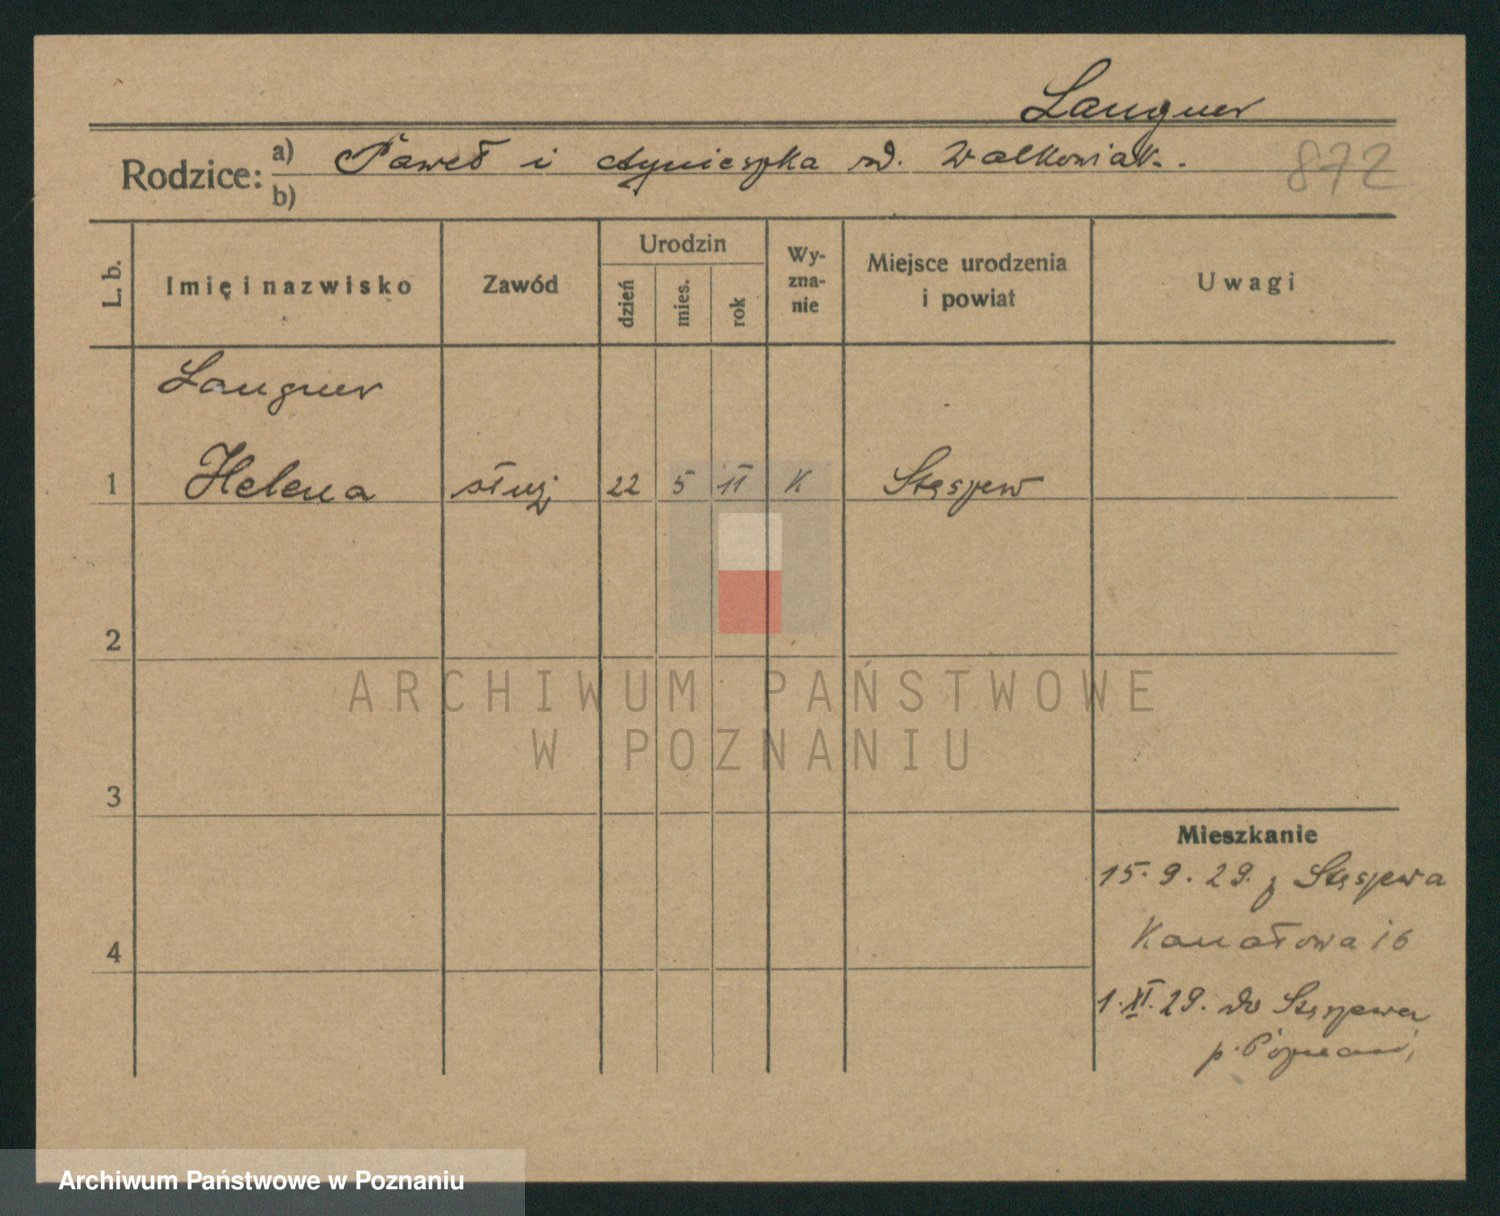 Langner
Rodzice: a) Paweł i Agnieszka rd. Walkowiak.
b)
872
L. b.
Imię i nazwisko
Zawód
Urodzin
dzień
mies.
rok
Wy-
zna-
nie
Miejsce urodzenia
i powiat
Uwagi
Langner
1 Helena służ 22 5 11 K Stęszew
2
3
4
Mieszkanie
15.9.29. z Stęszewa
Kanałowa 16
1.XI.29. do Stęszewa
p. Poznań
ARCHIWUM PAŃSTWOWE
W POZNANIU
Archiwum Państwowe w Poznaniu